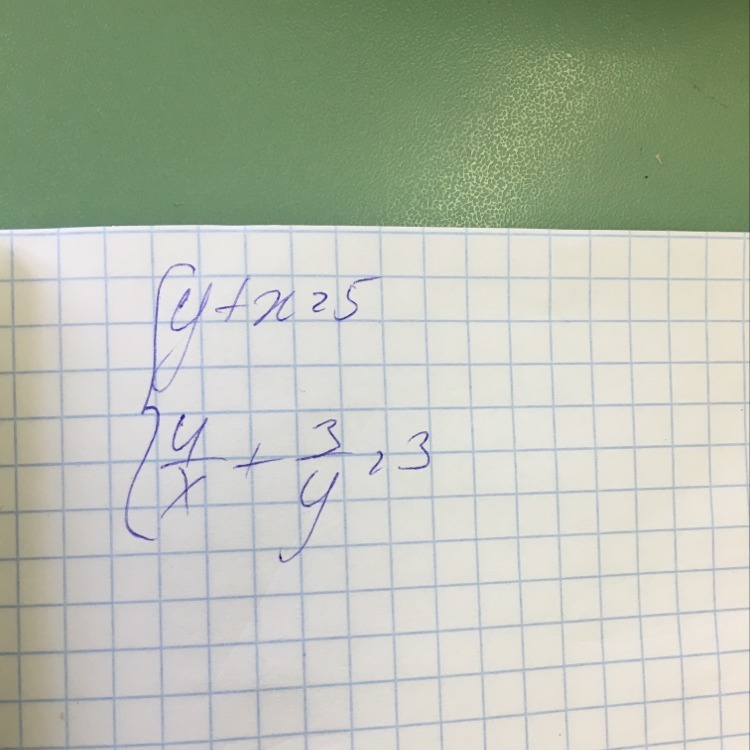 { y + x = 5
4/x + 3/y = 3